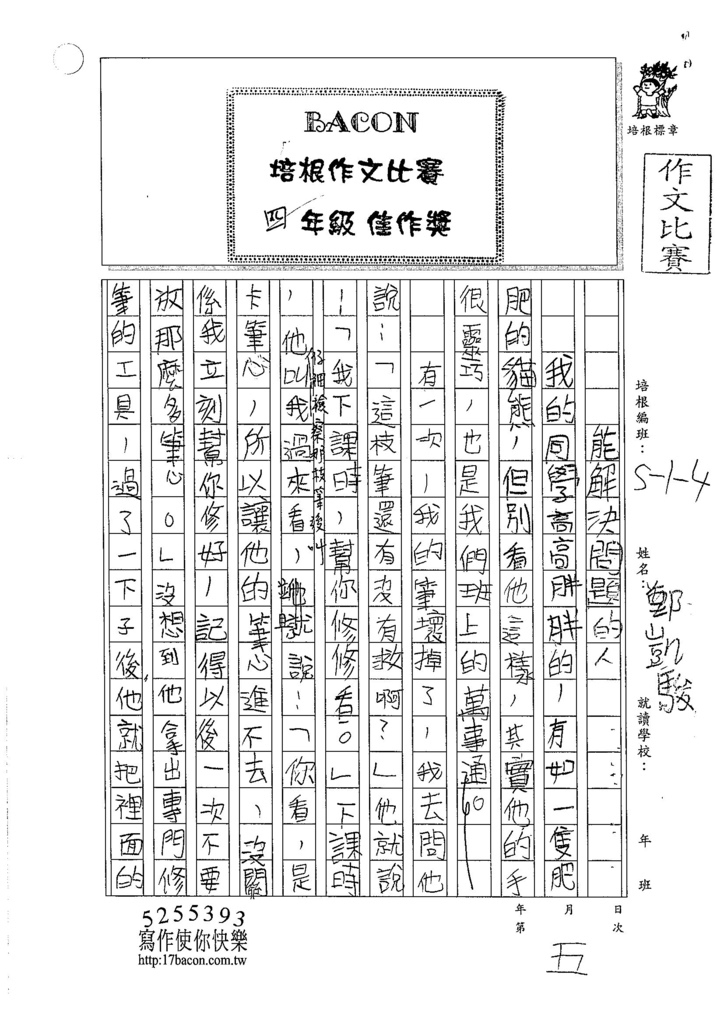 BACON
培根作文比賽
四年級 佳作獎
培根標章
作文比賽
培根編班：5-1-4
姓名：鄭凱駿
就讀學校：
年 班
能解決問題的人
我的同學高高胖胖的，有如一隻肥
肥的貓熊，但別看他這樣，其實他的手
很靈巧，也是我們班上的萬事通。
有一次，我的筆壞掉了，我去問他
說：「這枝筆還有沒有救啊？」他就說
：「我下課時，幫你修修看。」下課時
，他仔細檢察那枝筆後叫我過來看，他就說：「你看，是
卡筆心，所以讓他的筆心進不去，沒關
係我立刻幫你修好，記得以後一次不要
放那麼多筆心。」沒想到他拿出專門修
筆的工具，過了一下子後，他就把裡面的
5255393
寫作使你快樂
http:17bacon.com.tw
年 月 日
第 五 次